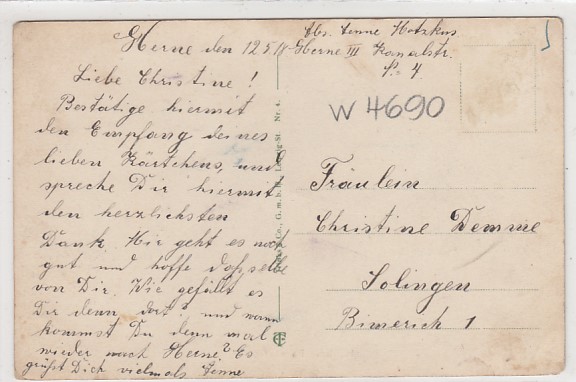 Herne den 12.5.18
Liebe Christine!
Bestätige hiermit
den Empfang deines
lieben Kärtchens, und
spreche Dir hiermit
den herzlichsten
Dank. Mir geht es noch
gut und hoffe dasselbe
von Dir. Wie gefällt es
Dir denn dort? und wann
kommst Du denn mal
wieder nach Herne? Es
grüßt Dich vielmals Änne
Abs. Änne Hotzkus
Herne III Kanalstr.
No. 4
W 4690
Fräulein
Christine Demme
Solingen
Bimerich 1
Co., G.m.b.H., Leipzig-St. Nr. 4.